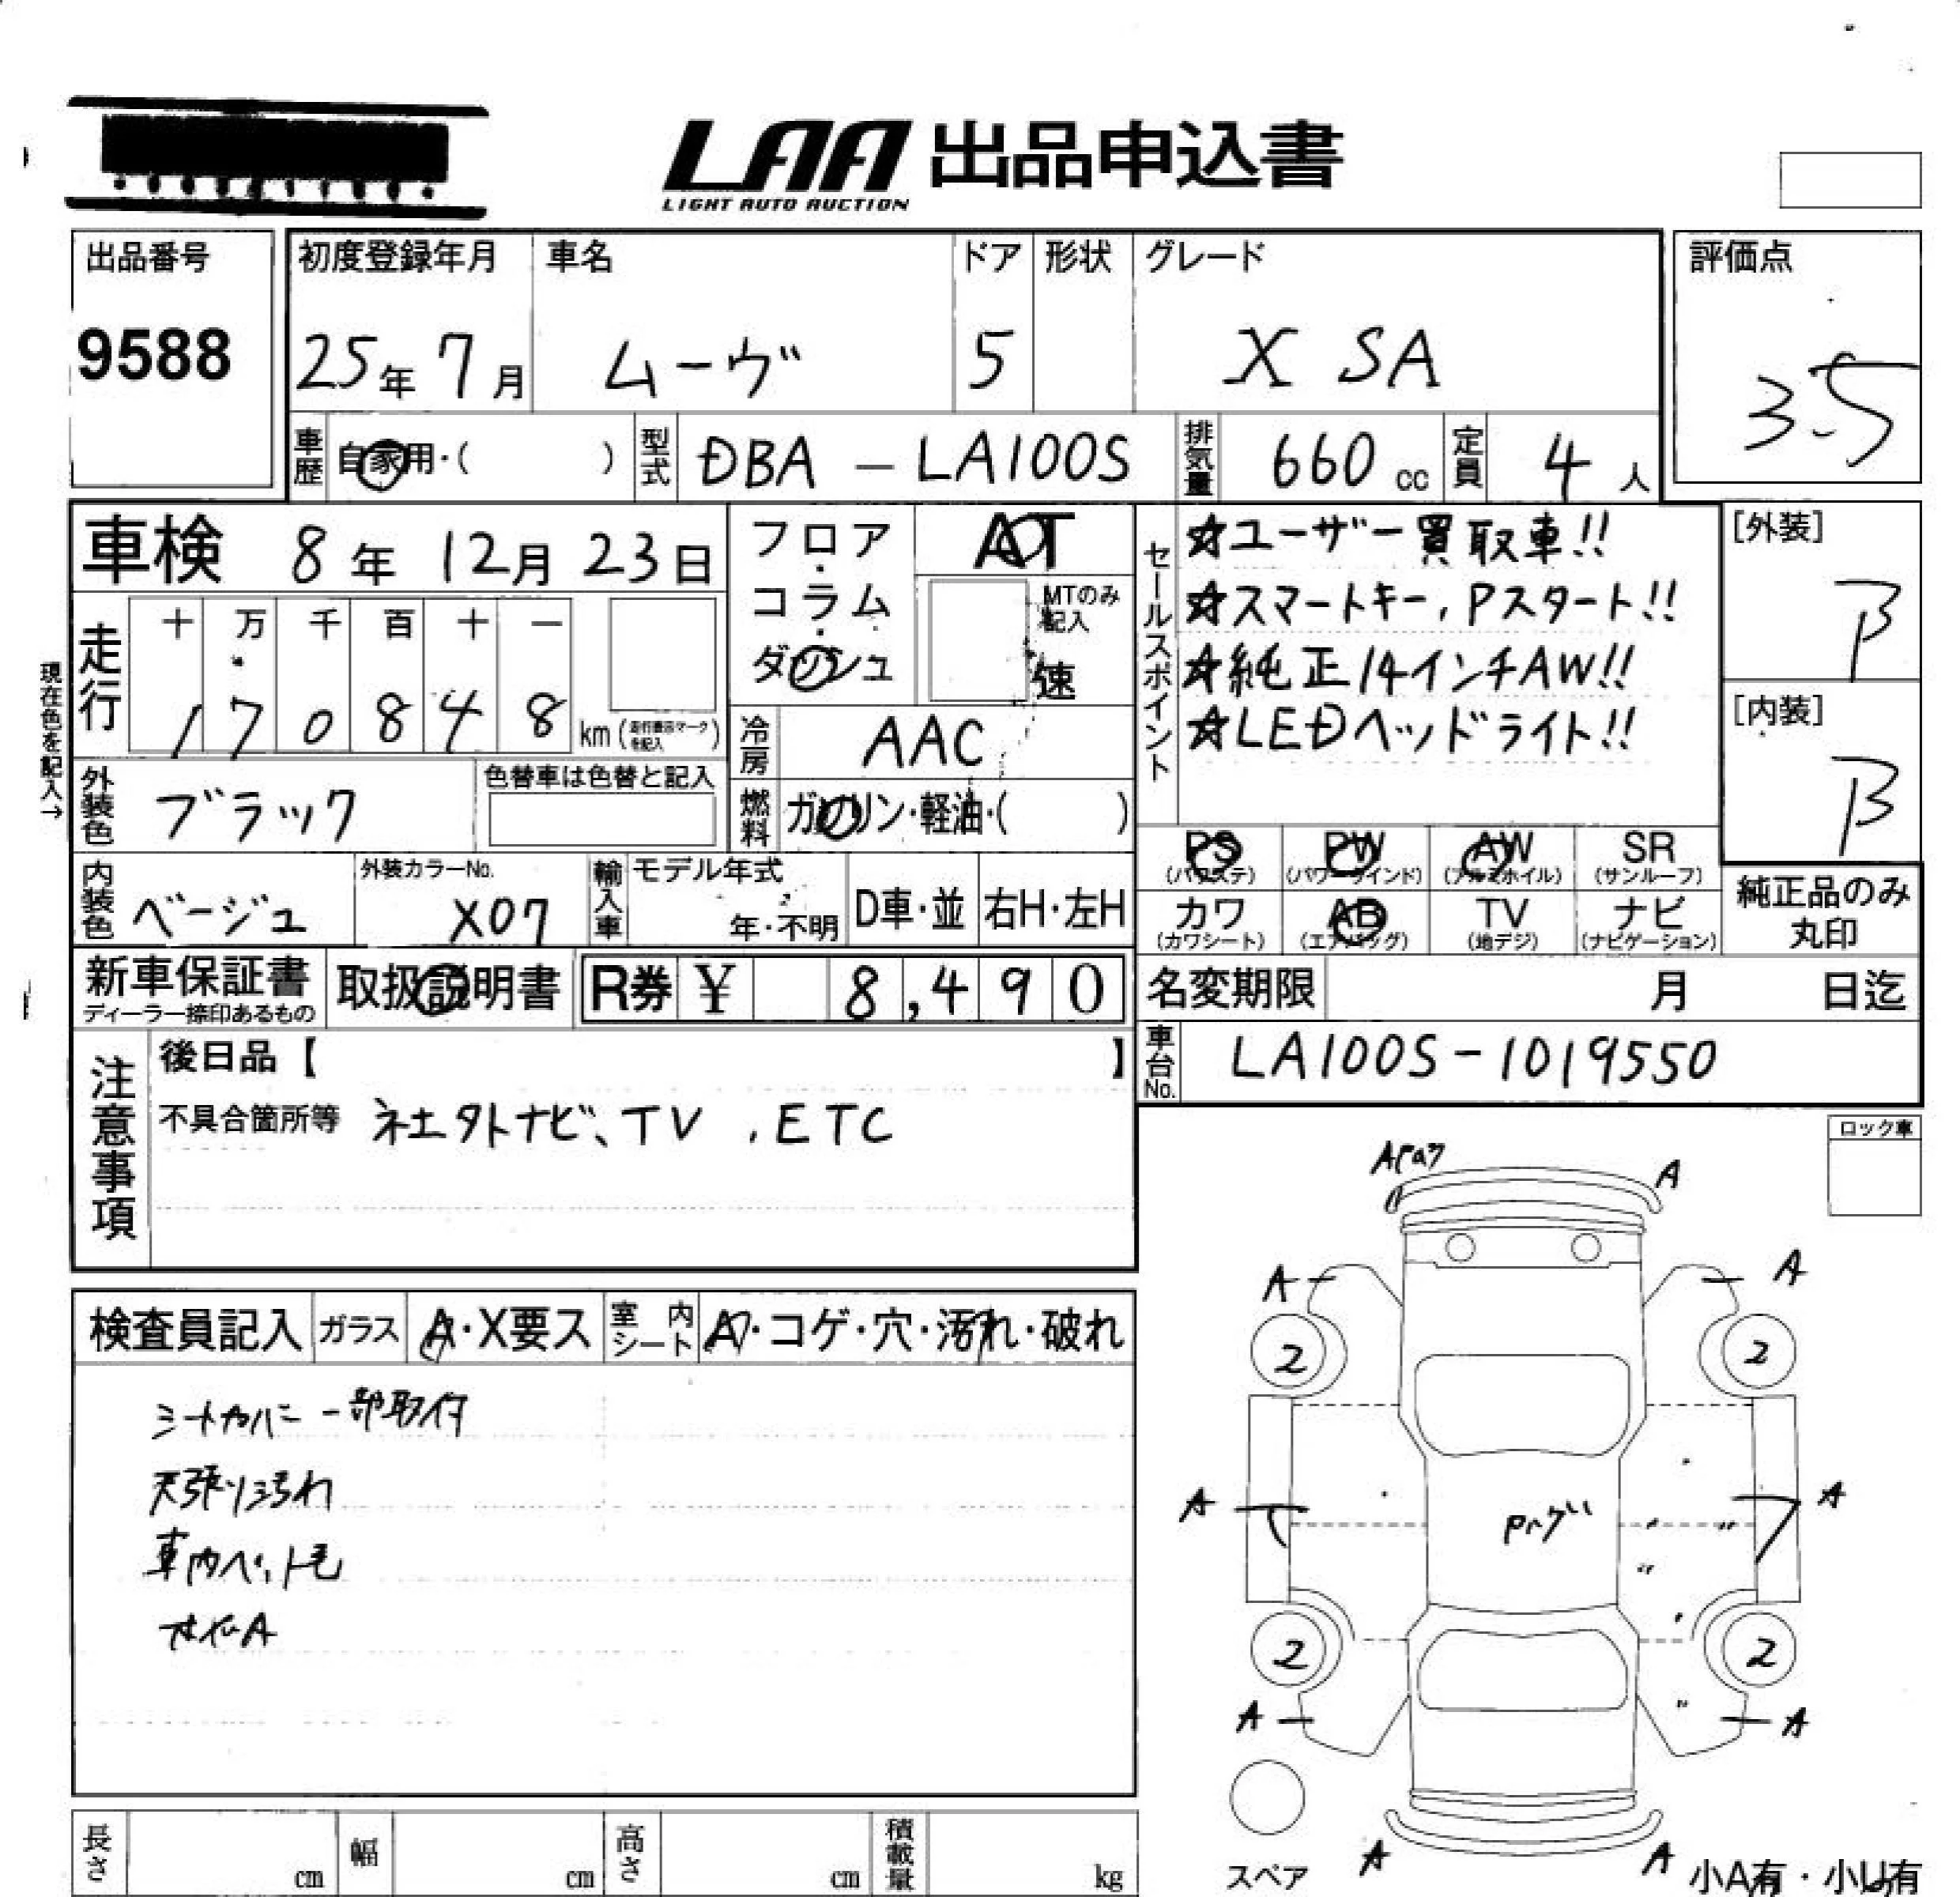 LAA 出品申込書
LIGHT AUTO AUCTION
出品番号
9588
初度登録年月
25年 7月
車名
ムーヴ
ドア
5
形状
グレード
X SA
評価点
3.5
車歴 自家用・( )
型式 DBA - LA100S
排気量 660 cc
定員 4 人
車検 8年 12月 23日
フロア・コラム・ダッシュ
AT
MTのみ記入
速
現在色を記入→
走行
十 万 千 百 十 一
1 7 0 8 4 8 km
冷房 AAC
燃料 ガソリン・軽油・( )
外装色 ブラック
色替車は色替と記入
内装色 ベージュ
外装カラーNo.
X07
輸入車
モデル年式
年・不明
D車・並
右H・左H
セールスポイント
☆ユーザー買取車!!
☆スマートキー,Pスタート!!
☆純正14インチAW!!
☆LEDヘッドライト!!
[外装]
B
[内装]
B
PS (パワステ)
PW (パワーウインド)
AW (アルミホイル)
SR (サンルーフ)
カワ (カワシート)
AB (エアバッグ)
TV (地デジ)
ナビ (ナビゲーション)
純正品のみ
丸印
新車保証書
ディーラー捺印あるもの
取扱説明書
R券 ¥ 8,490
名変期限 月 日迄
車台No. LA100S-1019550
注意事項
後日品【 】
不具合箇所等 社外ナビ、TV , ETC
ロック車
検査員記入
ガラス A・X要ス
室内シート A・コゲ・穴・汚れ・破れ
シートカバー一部取付
天張り汚れ
車内ペット毛
ホイールA
A
A A
2 2
A A
Pハゲ
2 2
A A
スペア
A A
小A有・小U有
長さ cm
幅 cm
高さ cm
積載量 kg